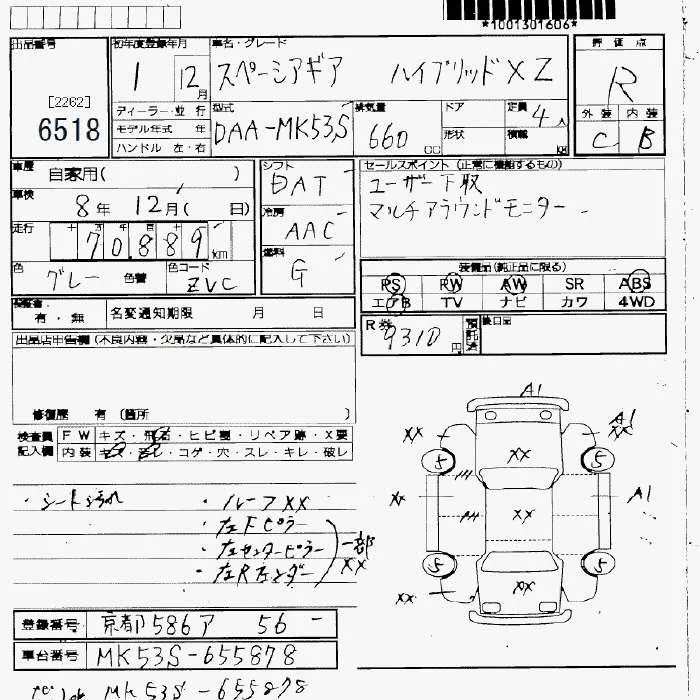 *1001301606*
出品番号 初年度登録年月 車名・グレード 評価点
[2262] 6518
1 12月 スペーシアギア ハイブリッドXZ R
ディーラー・並行 型式 排気量 ドア 定員 4人 外装 内装
モデル年式 年 DAA-MK53S 660cc 形状 積載 kg C B
ハンドル 左・右
車歴 自家用( ) シフト DAT セールスポイント (正常に機能するもの)
車検 8年 12月( 日) 冷房 AAC ユーザー下取
マルチアラウンドモニター
走行 70,889km 燃料 G
色 グレー 色替 色コード ZVC 装備品(純正品に限る)
PS PW AW SR ABS
エアB TV ナビ カワ 4WD
有・無 名変通知期限 月 日
R券 9310円 預託済 後日品
出品店申告欄 (不良内容・欠品など具体的に記入して下さい)
修復歴 有 (箇所 )
検査員 FW キズ・飛石・ヒビ割・リペア跡・X要
記入欄 内装 キズ・コゲ・穴・スレ・キレ・破レ
・シート汚れ ・ルーフXX
・左Fピラー
・左センターピラー 一部XX
・左Rフェンダー
A1
XX XX A1 XX
5 5
XX XX A1
5 5
XX XX
登録番号 京都586ア 56
車台番号 MK53S-655878
MK53S-655878